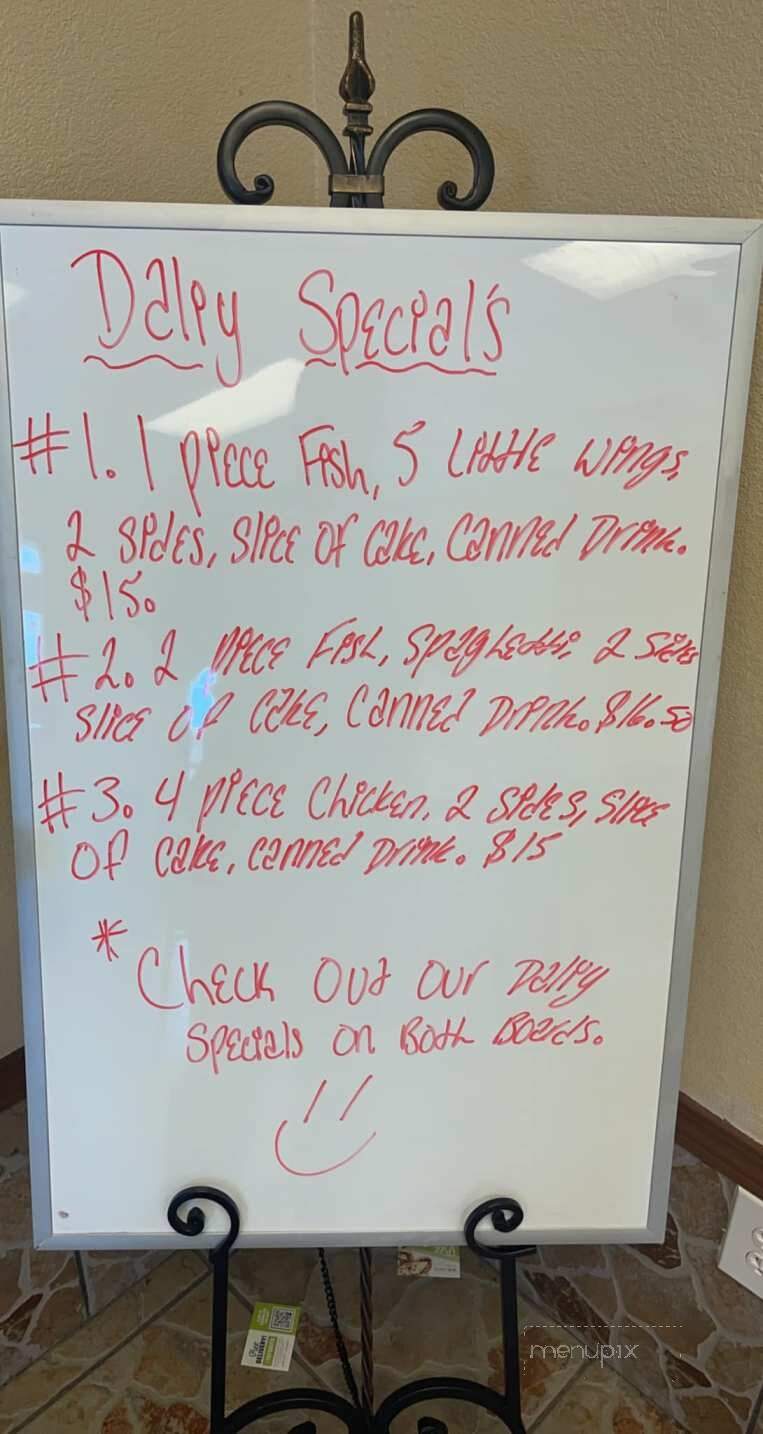 Daily Special's
#1. 1 piece Fish, 5 Little wings,
2 sides, slice of cake, canned Drink.
$15.
#2. 2 piece Fish, Spaghetti, 2 sides
slice of cake, canned Drink. $16.50
#3. 4 piece Chicken, 2 sides, slice
of cake, canned Drink. $15
* Check out our Daily
specials on Both Boards.
menupix